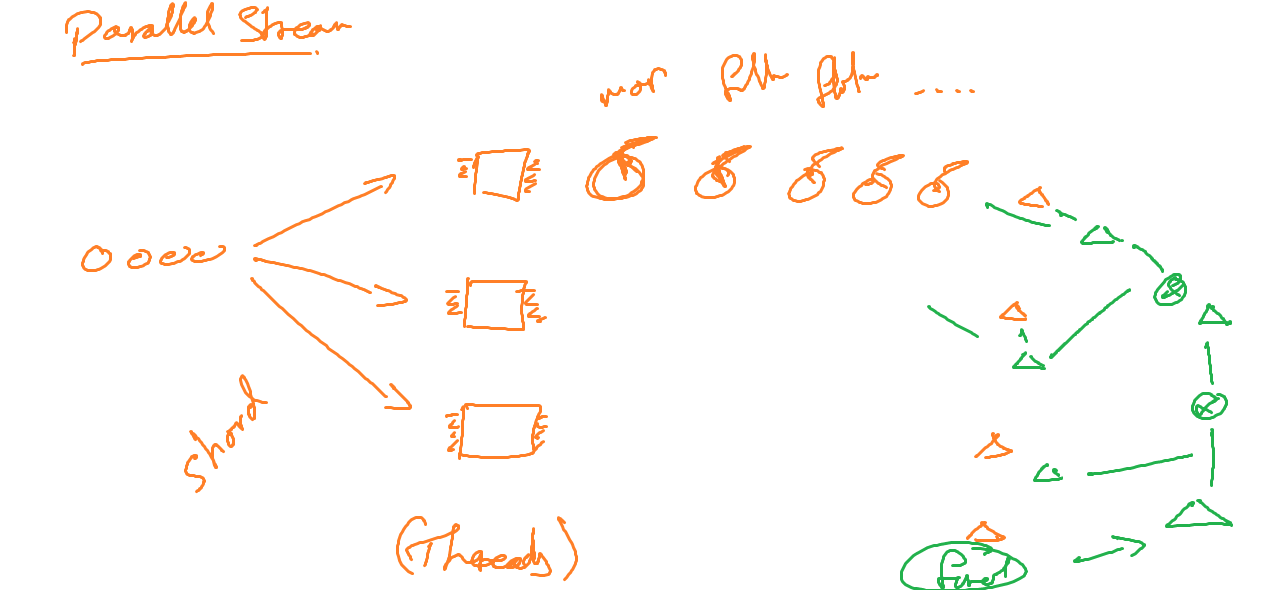 Parallel Stream
map filter flatm ....
shard
(Threads)
final